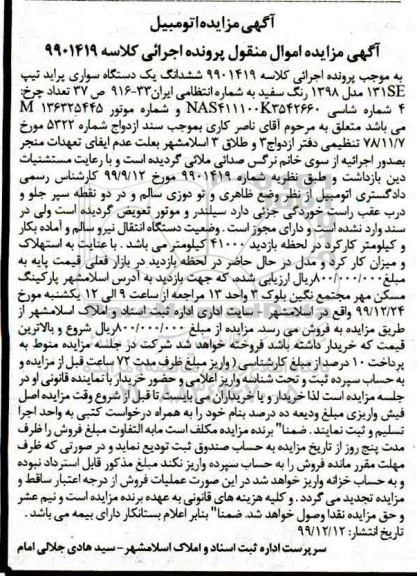 آگهی مزایده اتومبیل
آگهی مزایده اموال منقول پرونده اجرائی کلاسه ۹۹۰۱۴۱۹
به موجب پرونده اجرائی کلاسه ۹۹۰۱۴۱۹ ششدانگ یک دستگاه سواری پراید تیپ
۱۳۱SE مدل ۱۳۹۸ رنگ سفید به شماره انتظامی ایران۳۳-۹۱۶ ص ۳۷ تعداد چرخ:
۴ شماره شاسی NAS۴۱۱۱۰۰K۳۵۴۲۶۶۰ و شماره موتور M ۱۳۶۳۲۵۴۴۵
می باشد متعلق به مرحوم آقای ناصر کاری بموجب سند ازدواج شماره ۵۳۲۲ مورخ
۷۸/۱۱/۷ تنظیمی دفتر ازدواج۳ و طلاق ۳ اسلامشهر بعلت عدم ایفای تعهدات منجر
بصدور اجرائیه از سوی خانم نرگس صدائی ملائی گردیده است و با رعایت مستثنیات
دین بازداشت و طبق نظریه شماره ۹۹۰۱۴۱۹ مورخ ۹۹/۹/۱۲ کارشناس رسمی
دادگستری اتومبیل از نظر وضع ظاهری و تو دوزی سالم و در دو نقطه سپر جلو و
درب عقب راست خوردگی جزئی دارد سیلندر و موتور تعویض گردیده است ولی در
سند وارد نشده است و دارای مجوز است . وضعیت دستگاه انتقال نیرو سالم و آماده بکار
و کیلومتر کارکرد در لحظه بازدید ۴۱۰۰۰ کیلومتر می باشد . با عنایت به استهلاک
و میزان کار کرد و مدل در حال حاضر در لحظه بازدید در بازار فعلی قیمت پایه به
مبلغ۸۰۰/۰۰۰/۰۰۰ریال ارزیابی شده، که جهت بازدید به آدرس اسلامشهر پارکینگ
مسکن مهر مجتمع نگین بلوک ۳ واحد ۱۳ مراجعه از ساعت ۹ الی ۱۲ یکشنبه مورخ
۹۹/۱۲/۲۴ واقع در اسلامشهر - سایت اداری اداره ثبت اسناد و املاک اسلامشهر از
طریق مزایده به فروش می رسد. مزایده از مبلغ ۸۰۰/۰۰۰/۰۰۰ریال شروع و بالاترین
قیمت که خریدار داشته باشد فروخته خواهد شد شرکت در جلسه مزایده منوط به
پرداخت ۱۰ درصد از مبلغ کارشناسی (واریز مبلغ ظرف مدت ۷۲ ساعت قبل از مزایده و
به حساب سپرده ثبت و تحت شناسه واریز اعلامی و حضور خریدار یا نماینده قانونی او در
جلسه مزایده است لذا خریدار و یا خریداران می بایست تا قبل از شروع وقت مزایده اصل
فیش واریزی مبلغ ودیعه ده درصد بنام خود را به همراه درخواست کتبی به واحد اجرا
تسلیم و ثبت نمایند . ضمنا" برنده مزایده مکلف است مابه التفاوت مبلغ فروش را ظرف
مدت پنج روز از تاریخ مزایده به حساب صندوق ثبت تودیع نماید و در صورتی که ظرف
مهلت مقرر مانده فروش را به حساب سپرده واریز نکند مبلغ مذکور قابل استرداد نبوده
و به حساب خزانه واریز خواهد شد در این صورت عملیات فروش از درجه اعتبار ساقط و
مزایده تجدید می گردد . و کلیه هزینه های قانونی به عهده برنده مزایده است و نیم عشر
و حق مزایده نقدا وصول خواهد شد. ضمنا" بنابر اعلام بستانکار دارای بیمه می باشد .
تاریخ انتشار: ۹۹/۱۲/۱۲
سرپرست اداره ثبت اسناد و املاک اسلامشهر - سید هادی جلالی امام